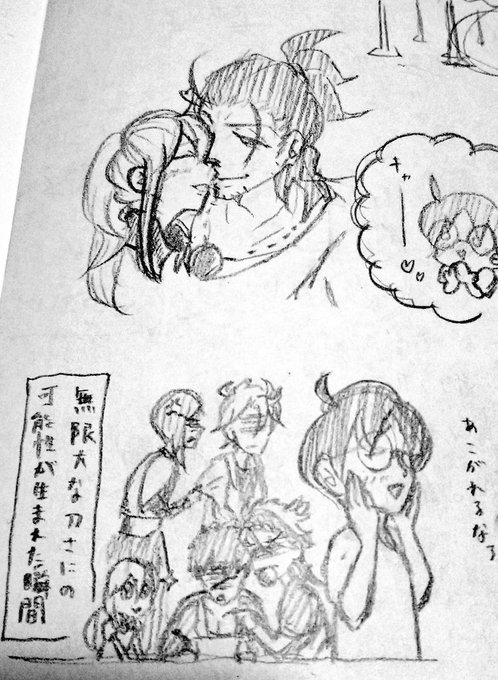 キャー♡♡
あこがれるなぁ
無限大な刀さにの
可能性が生まれた瞬間